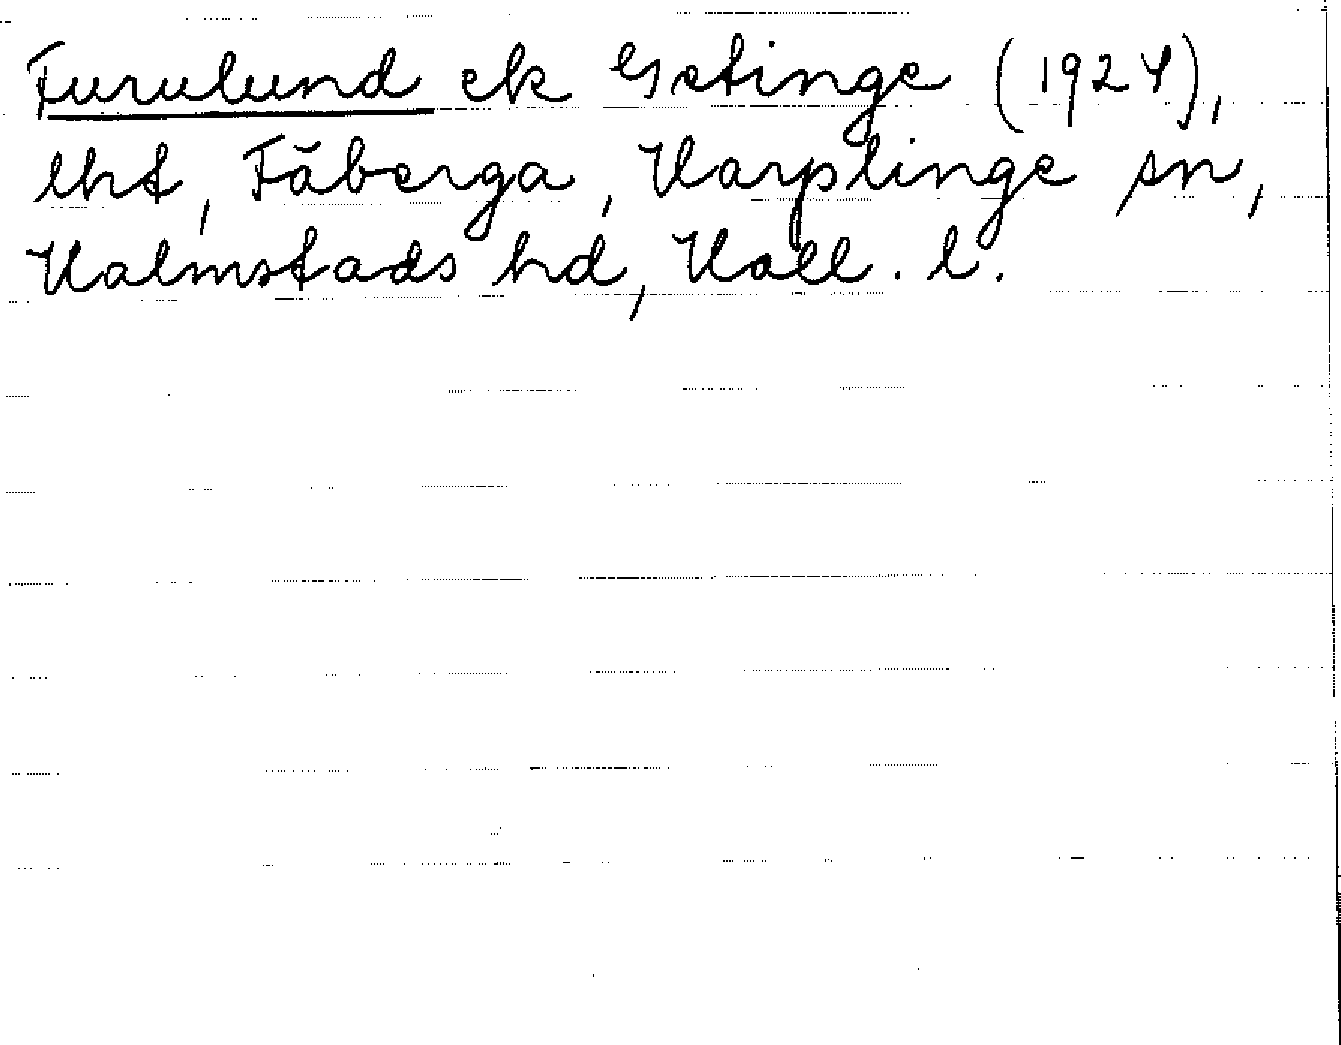 Furulund ek Getinge (1924),
lht, Fäberga, Harplinge sn,
Halmstads hd, Hall. l.